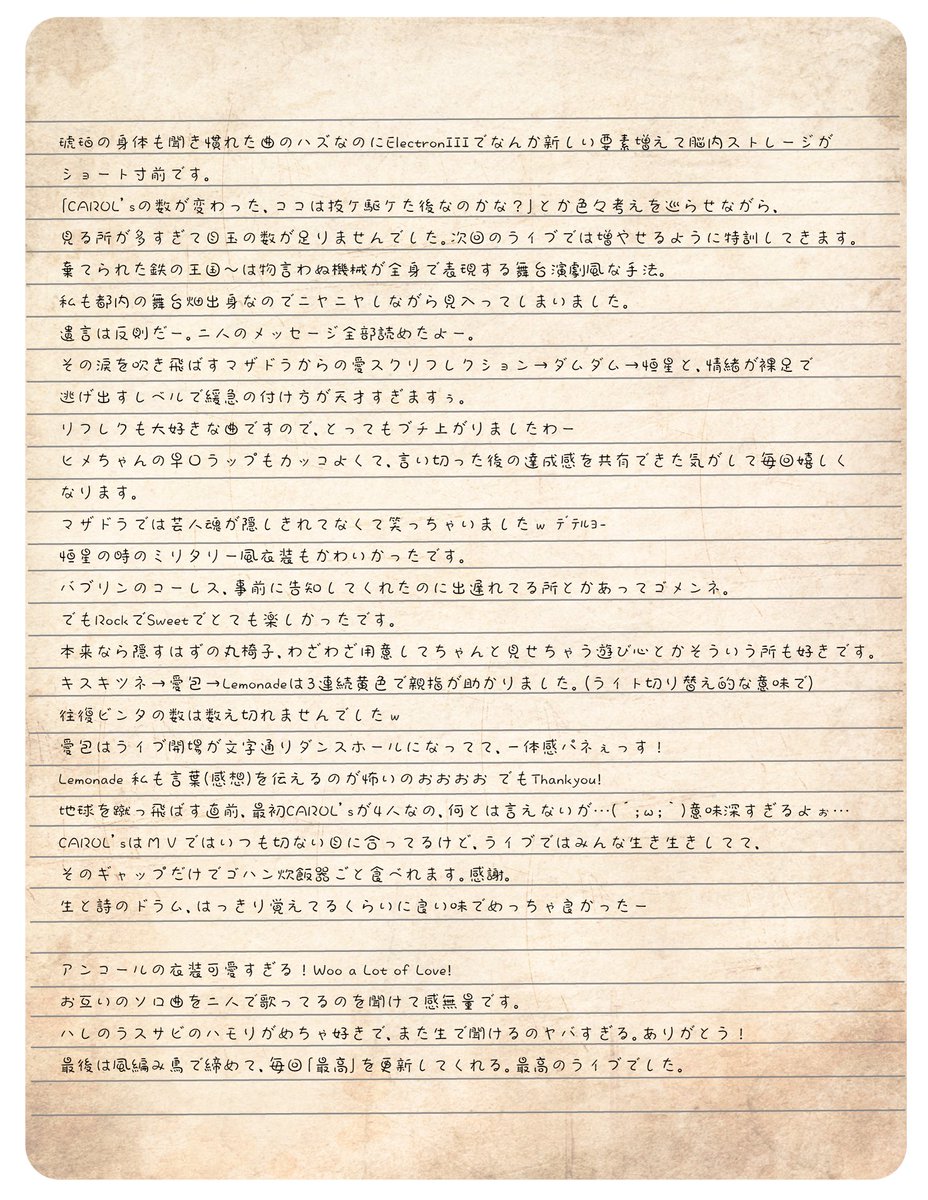 琥珀の身体も聞き慣れた曲のハズなのにElectronIIIでなんか新しい要素増えて脳内ストレージが
ショート寸前です。
「CAROL'sの数が変わった、ココは抜ケ駆ケた後なのかな?」とか色々考えを巡らせながら、
見る所が多すぎて目玉の数が足りませんでした。次回のライブでは増やせるように特訓してきます。
棄てられた鉄の王国～は物言わぬ機械が全身で表現する舞台演劇風な手法。
私も都内の舞台畑出身なのでニヤニヤしながら見入ってしまいました。
遺言は反則だー。二人のメッセージ全部読めたよー。
その涙を吹き飛ばすマザドラからの愛スクリフレクション→ダムダム→恒星と、情緒が裸足で
逃げ出すレベルで緩急の付け方が天才すぎますぅ。
リフレクも大好きな曲ですので、とってもブチ上がりましたわー
ヒメちゃんの早口ラップもカッコよくて、言い切った後の達成感を共有できた気がして毎回嬉しく
なります。
マザドラでは芸人魂が隠しきれてなくて笑っちゃいましたｗ ﾃﾞﾃﾙﾖｰ
恒星の時のミリタリー風衣装もかわいかったです。
バブリンのコーレス、事前に告知してくれたのに出遅れてる所とかあってゴメンネ。
でもRockでSweetでとても楽しかったです。
本来なら隠すはずの丸椅子、わざわざ用意してちゃんと見せちゃう遊び心とかそういう所も好きです。
キスキツネ→愛包→Lemonadeは3連続黄色で親指が助かりました。(ライト切り替え的な意味で)
往復ビンタの数は数え切れませんでしたｗ
愛包はライブ開場が文字通りダンスホールになってて、一体感パネぇっす！
Lemonade 私も言葉(感想)を伝えるのが怖いのおおおお でもThankyou!
地球を蹴っ飛ばす直前、最初CAROL'sが4人なの、何とは言えないが…(´;ω;｀)意味深すぎるよぉ…
CAROL'sはＭＶではいつも切ない目に合ってるけど、ライブではみんな生き生きしてて、
そのギャップだけでゴハン炊飯器ごと食べれます。感謝。
生と詩のドラム、はっきり覚えてるくらいに良い味でめっちゃ良かったー
アンコールの衣装可愛すぎる！Woo a Lot of Love!
お互いのソロ曲を二人で歌ってるのを聞けて感無量です。
ハレのうスサビのハモリがめちゃ好きで、また生で聞けるのヤバすぎる。ありがとう！
最後は風編み鳥で締めて、毎回「最高」を更新してくれる。最高のライブでした。